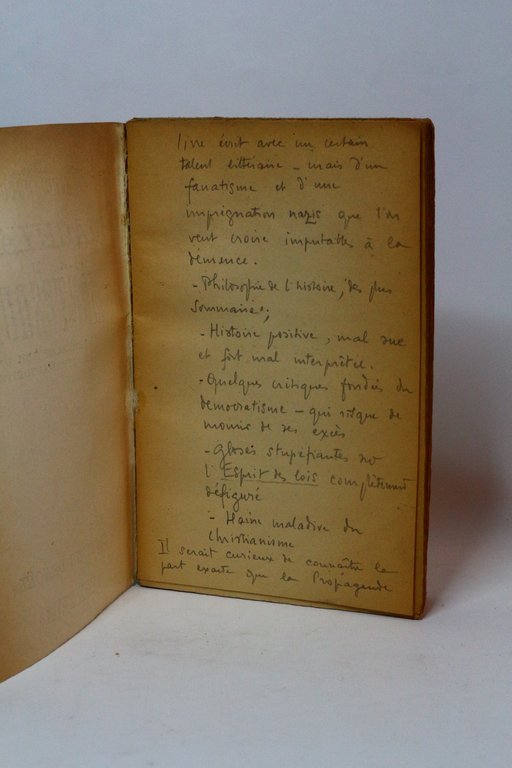 livre écrit avec un certain
talent littéraire – mais d'un
fanatisme et d'une
imprégnation nazis que l'on
veut croire imputables à la
démence.
- Philosophie de l'histoire, des plus
sommaires;
- Histoire positive, mal sue
et fort mal interprétée.
- Quelques critiques fondées du
démocratisme – qui risque de
mourir de ses excès
- gloses stupéfiantes
l'Esprit des lois complètement
défiguré
- Haine maladive du
christianisme
Il serait curieux de connaître la
part exacte que la Propagande